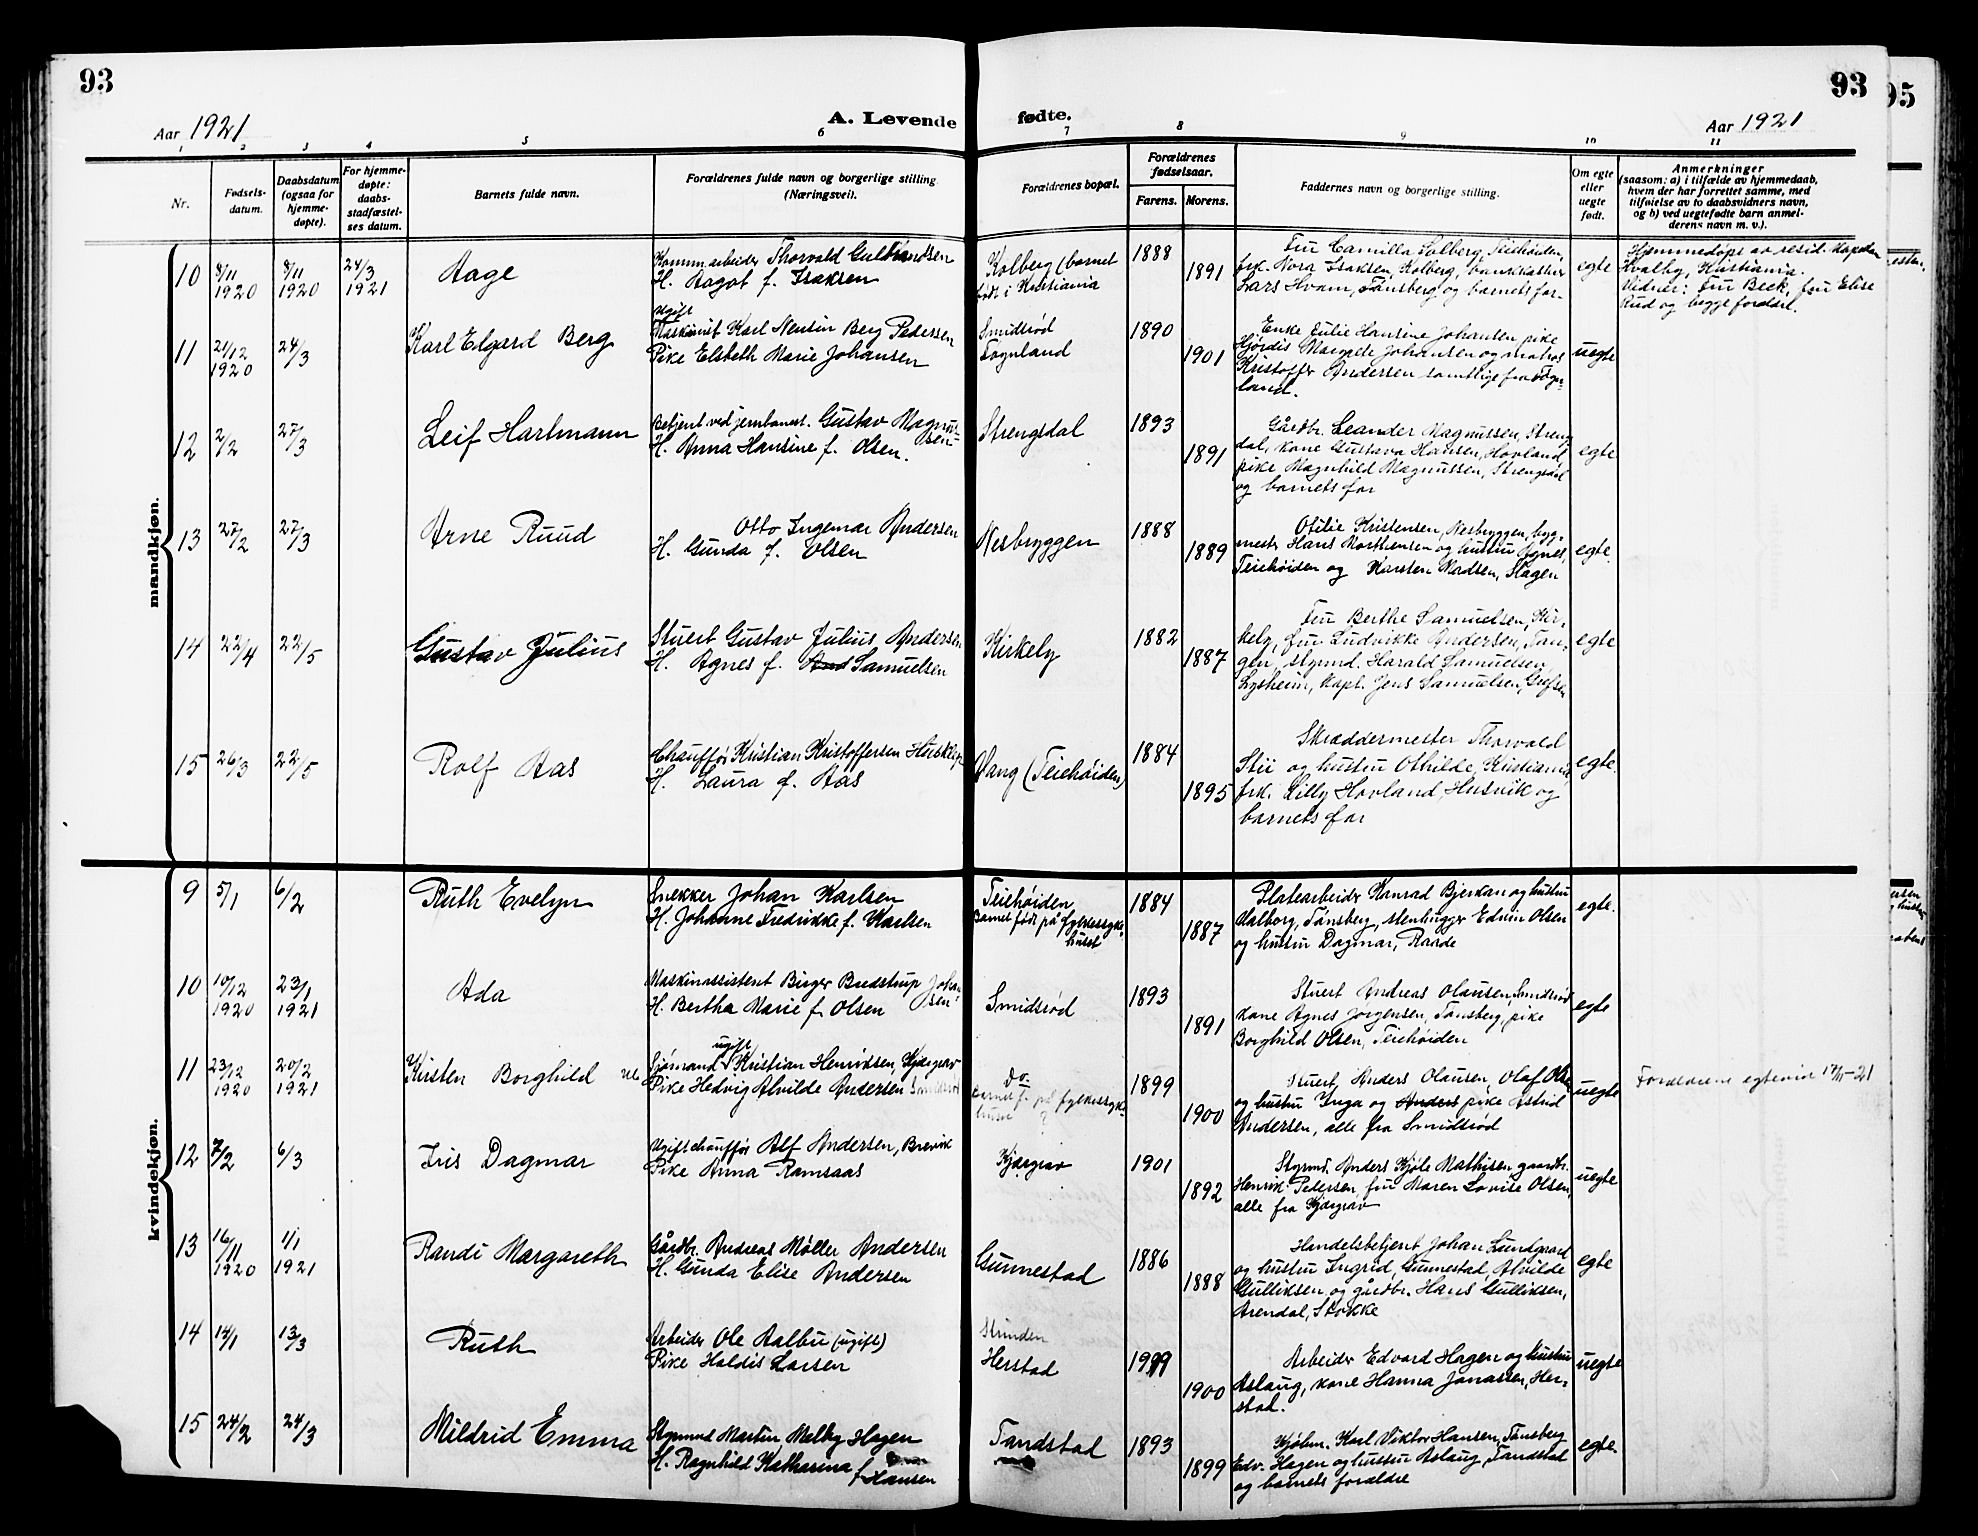 93
93
95
Aar 1921
A. Levende
fødte.
Aar 1921
1 2 3 4 5 6 7 8 9 10 11
Nr.
Fødsels-
datum.
Daabsdatum
(ogsaa for
hjemme-
døpte).
For hjemme-
døpte:
daabs-
stadfæstel-
ses datum.
Barnets fulde navn.
Forældrenes fulde navn og borgerlige stilling
(Næringsvei).
Forældrenes bopæl.
Forældrenes
fødselsaar.
Farens. Morens.
Faddernes navn og borgerlige stilling.
Om egte
eller
uegte
født.
Anmerkninger
(saasom: a) i tilfælde av hjemmedaab,
hvem der har forrettet samme, med
tilføielse av to daabsvidners navn,
og b) ved uegtefødte barn anmel-
derens navn m. v.).
mandkjøn.
10
8/11
1920
8/11
1920
24/3
1921
Aage
Komm.arbeider Thorvald
H. Aagot f. Isaksen
Kolberg (barnet
født i Kristiania
1888
1891
Fru Camilla Solberg, Teiehøiden,
frk. Nora Isaksen, Kolberg, bankkasser
Lars Hvam, Tønsberg og barnets far.
egte
Hjemmedøpt av resid. Kapellan
Hvalby, Kristiania.
Vidner: Fru Beck, fru Elise
Rud og begge forældre.
11
21/12
1920
24/3
Karl Elgard Berg
Ugift
Maskinist Karl Nensin Berg Pedersen
Pike Elsbeth Marie Johansen
Smidsrød
Fognland
1890
1901
Enke Eulie Hansine Johansen pike
Hjørdis Margrete Johansen og matros
Kristoffer Andersen samtlige fra Fogn-
land.
uegte
12
2/2
27/3
Leif Hartmann
Betjent ved jernbanen. Gustav Magnus-
sen
H. Anna Hansine f. Olsen.
Strengsdal
1893
1891
Gårdbr. Leander Magnussen, Streng-
dal, kone Gustava Hansen, Hovland
pike Magnhild Magnussen, Strengsdal
og barnets far
egte
13
27/2
27/3
Arne Ruud
Otto Ingemar Andersen
H. Gunda f. Olsen
Nesbryggen
1888
1889
Otilie Kristensen, Nesbryggen, byg-
mester Hans Morthensen og hustru Agnes,
Teiehøiden og Karsten Madsen, Slagen
egte.
14
22/4
22/5
Gustav Julius
Stuert Gustav Julius Andersen
H. Agnes f. And Samuelsen
Kirkely
1882
1887
Fru Berthe Samuelsen, Kir-
kely, fru Ludvikke Andersen, Tan-
gen, styrmd. Harald Samuelsen,
Lysheim, kapt. Jens Samuelsen,
egte
15
26/3
22/5
Rolf Aas
Chauffør Kristian Kristoffersen
H. Laura f. Aas
Vang (Teiehøiden)
1884
1895
Skræddermester Thorvald
Stii og hustru Othilde, Kristiania,
frk. Lilly Hovland, Husvik og
barnets far
egte.
kvindekjøn.
9
5/1
6/2
Ruth Evelyn
Snekker Johan Karlsen
H. Johanne Fredrikke f. Karlsen
Teiehøiden
Barnet født på fylkessyke-
huset
1884
1887
Platearbeider Konrad Bjerkan og hustru
Valborg, Tønsberg, stenhugger Edvin Olsen
og hustru Dagmar, Raade
egte.
10
10/12
1920
23/1
1921
Ada
Maskinassistent Birger Budstrup Johan-
sen
H. Bertha Marie f. Olsen
Smidsrød
1893
1891
Stuert Andreas Olausen, Smidsrød
kone Agnes Jørgensen, Tønsberg, pike
Borghild Olsen, Teiehøiden
egte
11
23/12
1920
20/2
1921
Kirsten Borghild
ugift
Sjømand Kristian Henriksen, Kjærgrav
Pike Hedvig Alvilde Andersen Smidsrød
Do.
Barnet f. på fylkessyke-
huset ?
1899
1900
Stuert, Anders Olausen, Olaf Olsen
og hustru Inga og Anders pike Astrid
Andersen, alle fra Smidsrød
uegte
Forældrene egteviet 17/11-21
12
7/2
6/3
Iris Dagmar
Ugift chauffør Alf Andersen, Brevik
Pike Anna Ramsaas
Kjærgrav
1901
1892
Styrmd. Anders Kjøle Mathisen gaardbr.
Henrik Pedersen, fru Maren Lovise Olsen,
alle fra Kjærgrav
uegte
13
16/11
1920
1/1
1921
Randi Margareth
Gårdbr. Andreas Møller Andersen
H. Gunda Elise Andersen
Gunnestad
1886
1888
Handelsbetjent Johan Lundgaard
og hustru Ingrid, Gunnestad, Alvilde
Gulliksen og gårdbr. Hans Gulliksen,
Arendal, Stokke
egte
14
14/1
13/3
Ruth
Arbeider Ole Aalbu (ugift)
Pike Haldis Larsen
Strinden
Herstad
1899
1900
Arbeider Edvard Hagen og hustru
Aslaug, kone Hanna Jonassen, Her-
stad.
uegte
15
24/2
24/3
Mildrid Emma
Styrmand Martin Melby Hagen
H. Ragnhild Katharina
f. Hansen
Tandstad
1893
1899
Kjøbm. Karl Viktor Hansen, Tønsberg
Edv. Hagen og hustru Aslaug, Tandstad
og barnets forældre
egte.